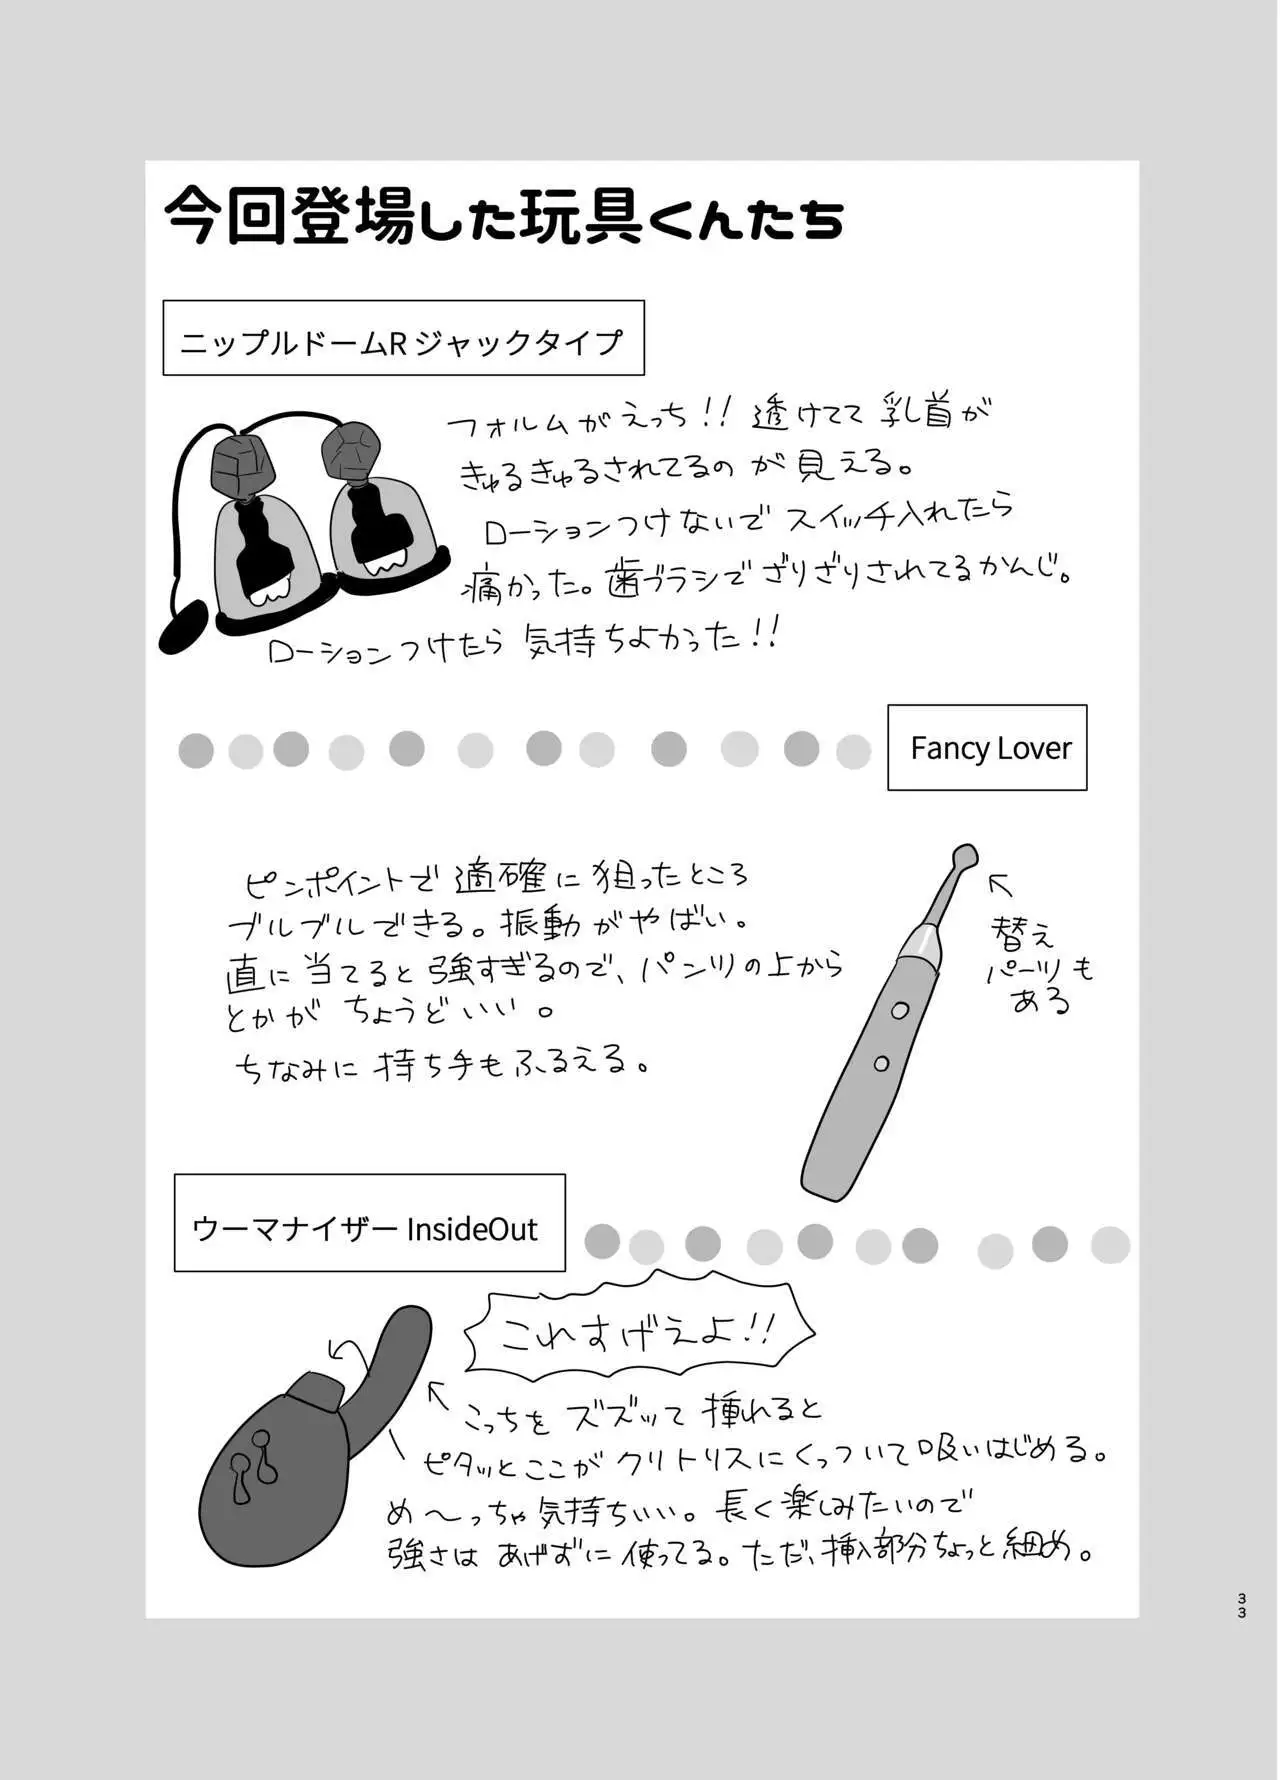 今回登場した玩具くんたち
ニップルドームR ジャックタイプ
フォルムがえっち!! 透けてて乳首が
きゅるきゅるされてるのが見える。
ローションつけないでスイッチ入れたら
痛かった。歯ブラシでざりざりされてるかんじ。
ローションつけたら気持ちよかった!!
Fancy Lover
ピンポイントで適確に狙ったところ
ブルブルできる。振動がやばい。
直に当てると強すぎるので、パンツの上から
とかがちょうどいい。
ちなみに持ち手もふるえる。
替え
パーツも
ある
ウーマナイザー InsideOut
これすげえよ!!
こっちをズズズッて挿れると
ピタッとここがクリトリスにくっついて吸いはじめる。
め〜っちゃ気持ちいい。長く楽しみたいので
強さはあげずに使ってる。ただ、挿入部分ちょっと細め。
33